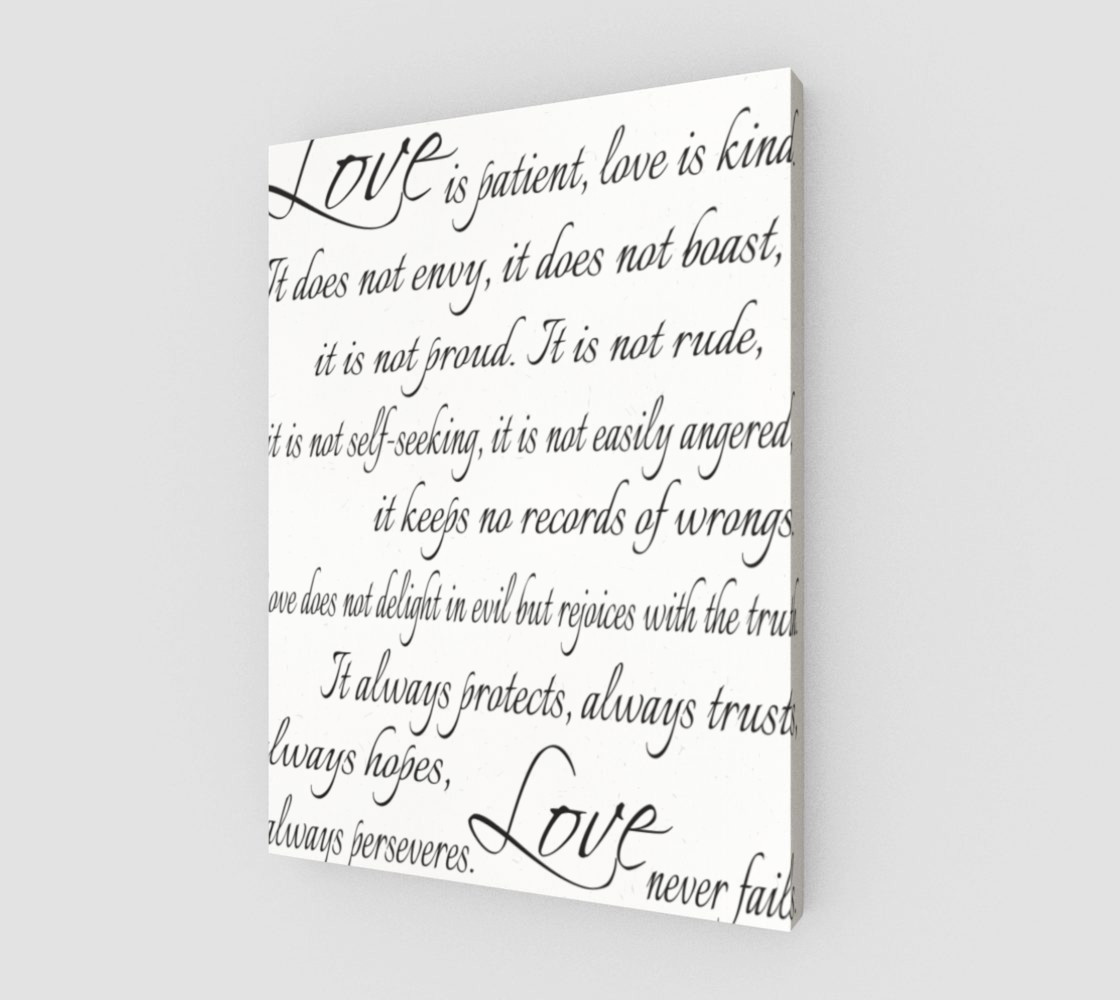 Love is patient, love is kind.
It does not envy, it does not boast,
it is not proud. It is not rude,
it is not self-seeking, it is not easily angered,
it keeps no records of wrongs.
ove does not delight in evil but rejoices with the truth.
It always protects, always trusts,
lways hopes,
always perseveres. Love
never fails.